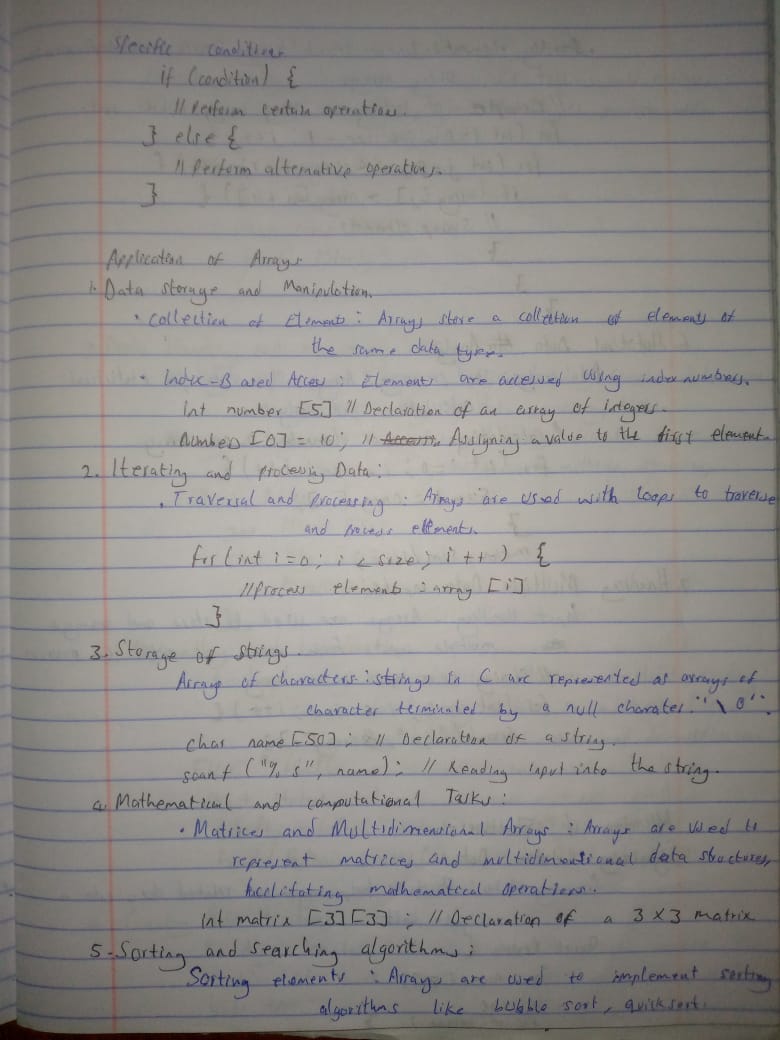 Specific conditions
if (condition) {
// Perform certain operations.
} else {
// Perform alternative operations.
}
Application of Arrays
1. Data storage and Manipulation.
• Collection of Elements : Arrays store a collection of elements of
the same data types.
• Index-Based Access : Elements are accessed using index numbers.
Int number [5] // Declaration of an array of integers.
Numbers [0] = 10; // Assigning a value to the first element.
2. Iterating and processing Data :
• Traversal and processing : Arrays are used with loops to traverse
and process elements.
for (int i = 0; i < size; i ++) {
// Process elements : array [i]
}
3. Storage of strings.
Arrays of characters : strings in C are represented as arrays of
character terminated by a null charater "\0".
char name [50]; // Declaration of a string.
scanf ("% s", name); // Reading input into the string.
4. Mathematical and computational Tasks :
• Matrices and Multidimensional Arrays : Arrays are used to
represent matrices and multidimentional data structures,
facilitating mathematical operations.
Int matrix [3][3] ; // Declaration of a 3 X 3 matrix
5 - Sorting and searching algorithms ;
Sorting elements : Arrays are used to implement sorting
algorithms like bubble sort, quick sort.